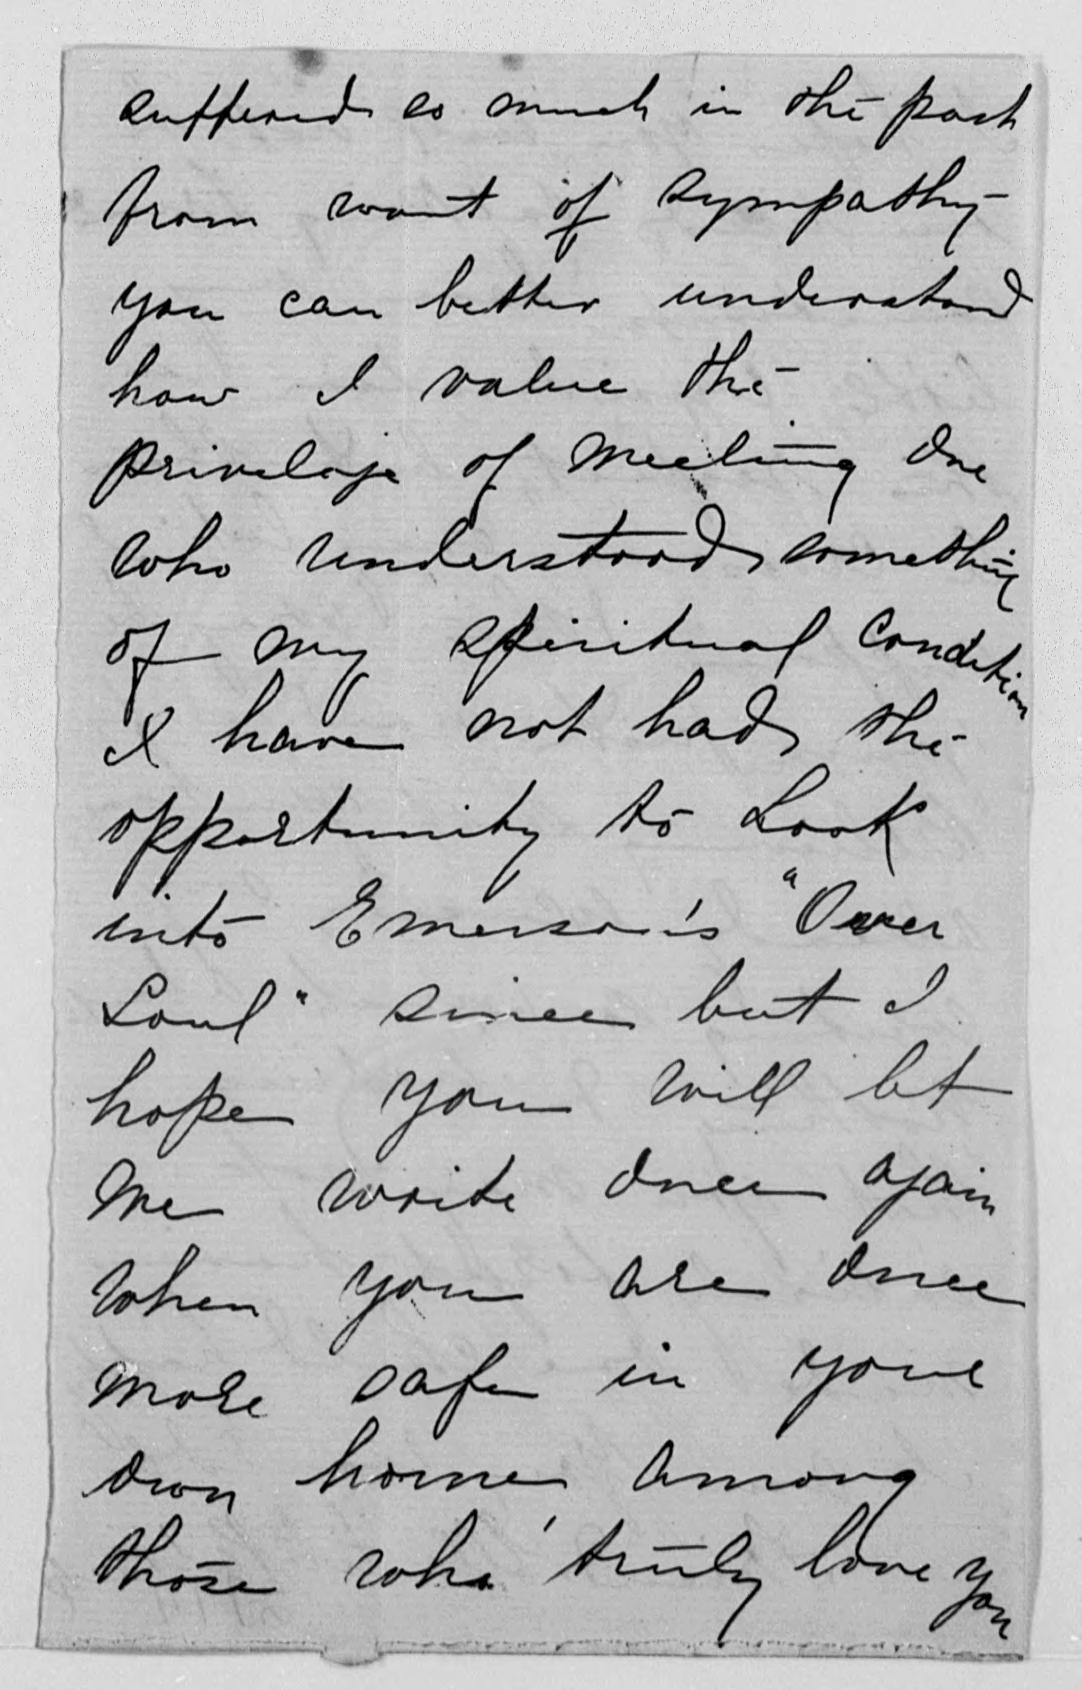 suffered so much in the past
from want of sympathy
you can better understand
how I value the
privelage of meeting one
who understood something
of my spiritual condition
I have not had the
opportunity to Look
into Emerson's "Over
Soul" since but I
hope you will let
me write once again
when you are once
more safe in your
own home among
those who truly love you